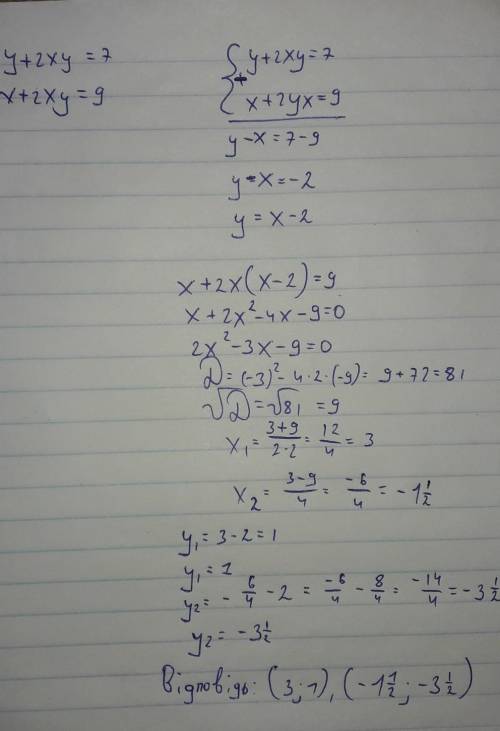 y+2xy=7
x+2xy=9
y+2xy=7
x+2yx=9
y-x=7-9
y-x=-2
y=x-2
x+2x(x-2)=9
x+2x²-4x-9=0
2x²-3x-9=0
D=(-3)²-4·2·(-9)=9+72=81
√D=√81=9
x₁=(3+9)/(2·2)=12/4=3
x₂=(3-9)/4=-6/4=-1 1/2
y₁=3-2=1
y₁=1
y₂=-6/4-2=-6/4-8/4=-14/4=-3 1/2
y₂=-3 1/2
Відповідь: (3;1),(-1 1/2;-3 1/2)